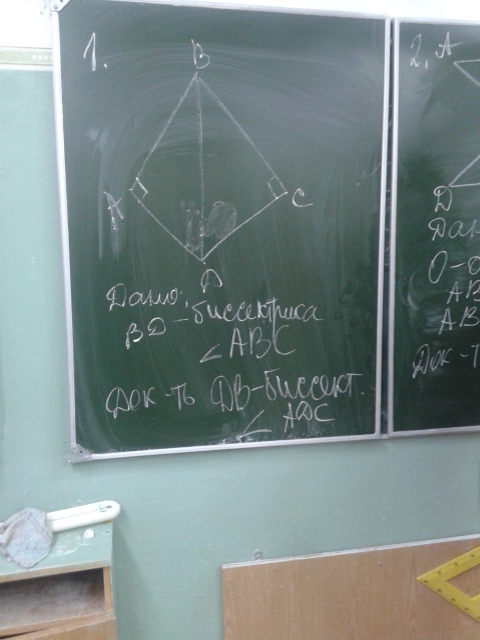 1.
B
A
C
D
Дано:
BD - биссектрика
∠ABC
Док-ть DB-биссект.
∠ADC
2. A
D
Дан
O-
AB
AB
Док-т